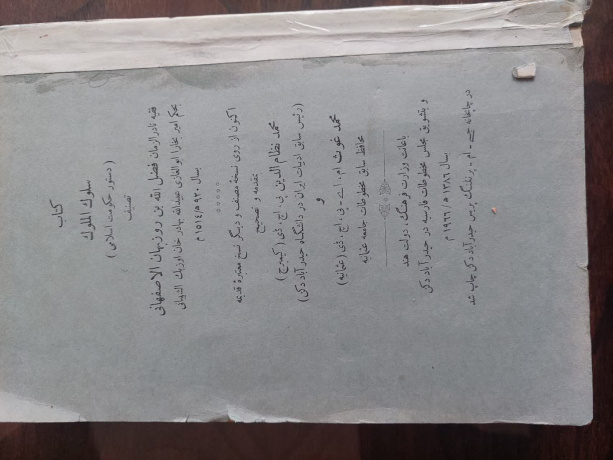 کتاب
سلوک الملوک
( دستور حکومت اسلامی )
تصنیف
فقیه نادر الزمان فضل الله بن روزبهان الاصفهانی
بحکم امیر بخارا ابو الغازی عبیدالله بهادر خان اوزبک الشیبانی
بسال ۹۲۰ ھ ۱۵۱٤ م
اکنون از روی نسخهٔ مصنف و دیگر نسخ معتبرهٔ قدیمه
بتقدمه و تصحیح
محمد نظام الدین پی ، ایچ ، ڈی ( کیمبرج )
(رئیس سابق ادبیات ایران در دانشگاه حیدر آباد دکن)
و
محمد غوث ام ، اے - پی ، ایچ ، ڈی (عثمانیه)
محافظ سابق مخطوطات جامعه عثمانیه
باعانت وزارت فرهنگ ، دولت هند
و بتشویق مجلس مخطوطات فارسیه در حیدر آباد دکن
سال ۱۳۸٦ ھ ۱۹٦٦ م
در چاپخانه جے - ام - پرنٹنگ پریس حیدرآباد دکن چاپ شد